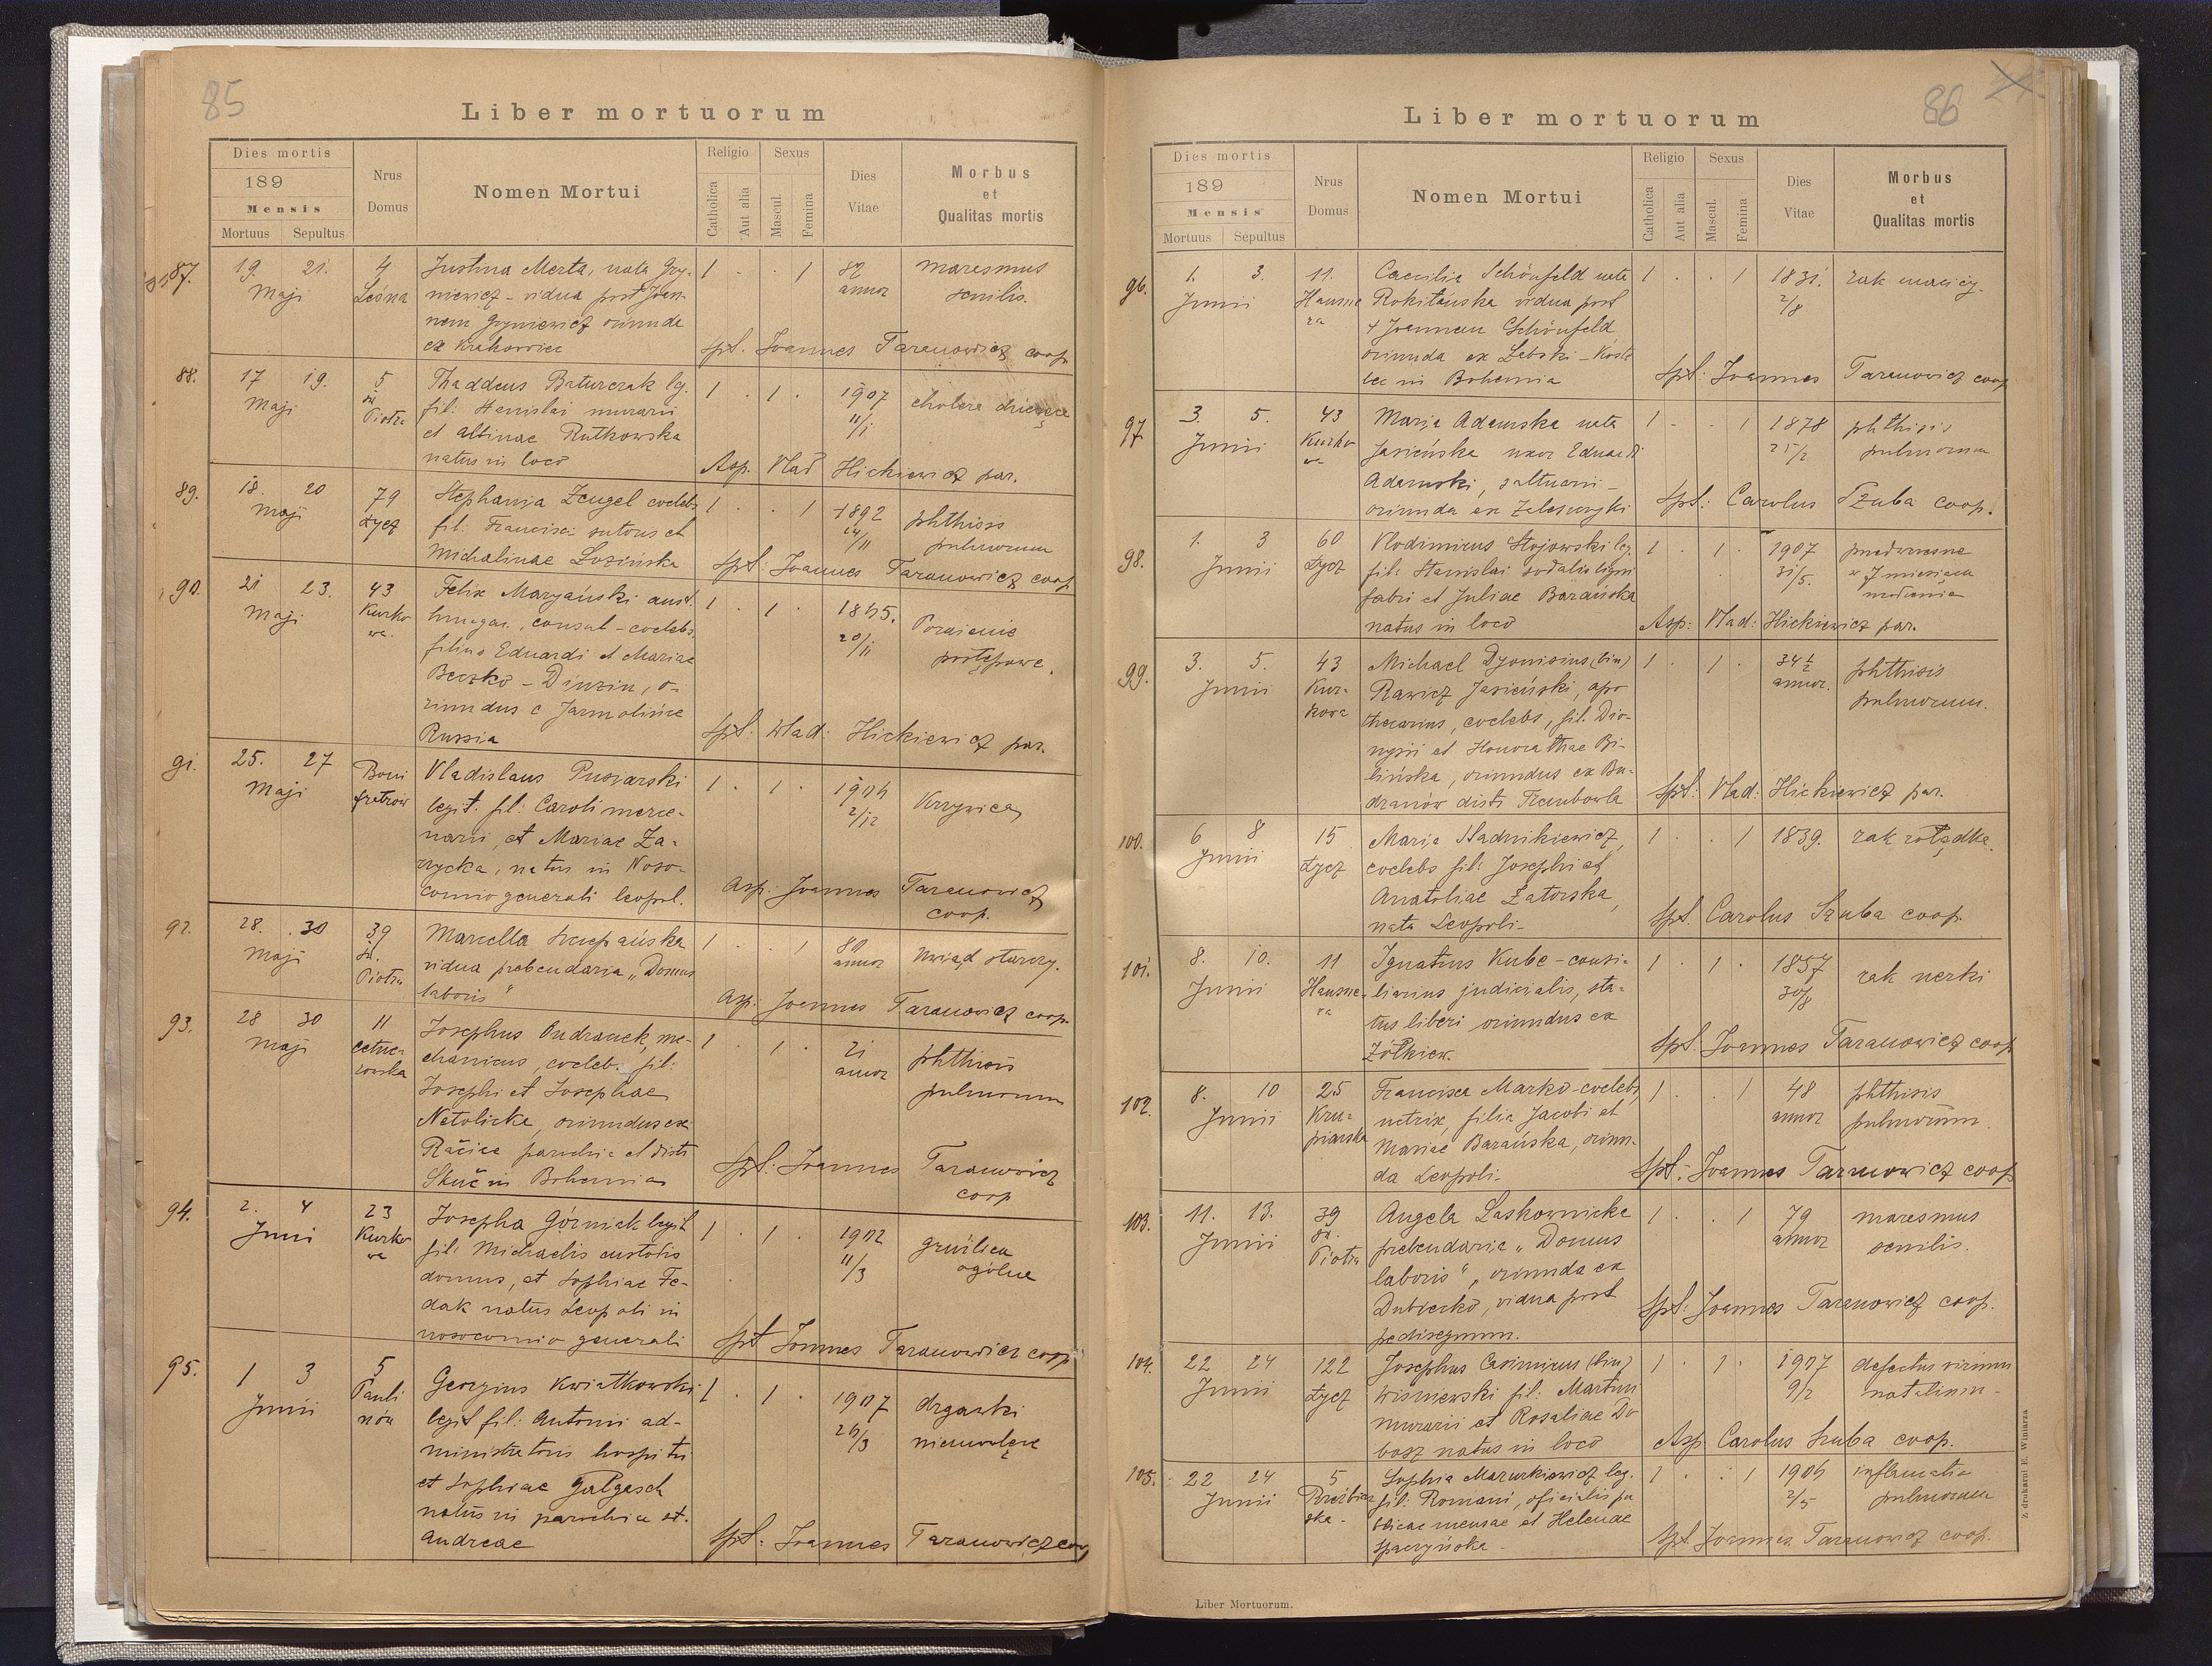 85
Liber mortuorum
Dies mortis
189
Mensis
Mortuus Sepultus
Nrus
Domus
Nomen Mortui
Religio
Catholica
Aut alia
Sexus
Mascul.
Femina
Dies
Vitae
Morbus
et
Qualitas mortis
87. 19. 21. Maji
4 Leśna
Justina Merta, nata Gry-
niewicz - vidua post Joan-
nem Gryniewicz oriunda
ex Krakowiec
1 . . 1
82 annor
maresmus
senilis.
spt. Joannes Taranowicz coop.
88. 17 19. Maji
5 św Piotra
Thaddeus Baturczak lg.
fil: Stanislai murarii
et Albinae Rutkowska
natus in loco
1 . 1 .
1907
11/1
cholera dziecięca
Asp. Vlad Hickiewicz par.
89. 18. 20 Maji
79 Łycz
Stephania Zeugel coelebs
fil: Francisci sutoris et
Michalinae Łozińska
1 . . 1
1892
24/11
phthisis
pulmonum
spt: Joannes Taranowicz coop
90. 21 23. Maji
43 Kurko
wa.
Felix Maryański aust.
hungar. consul - coelebs
filius Eduardi et Mariae
Beczko - Diuzin, o-
riundus e Jarmolińce
Russia
1 . 1 .
1865.
20/11
Porażenie
postępowe.
Spt: Wlad: Hickiewicz par.
91. 25. 27 Maji
Boni
fratrów
Vladislaus Pusiarski
legit. fil: Caroli merce-
narii, et Mariae Za-
rzycka, natus in Noso-
comio generali leopol.
1 . 1 .
1906
2/12
Krzywica
Asp: Joannes Taranowicz
coop.
92. 28. 30 Maji
39 św. Piotra
Marcella Szczepańska
vidua prebendaria „Domus
laboris"
1 . . 1
80 annor
Uwiąd starczy.
Asp: Joannes Taranowicz coop.
93. 28 30 Maji
11
Josephus Ondrauek, me-
chanicus, coeleb. fil:
Josephi et Josephae
Netolicka, oriundus ex
Račice parochia et distr
Skuč in Bohemia
1 . 1 .
21 annor
phthisis
pulmonum
Spt: Joannes Taranowicz
coop
94. 2. 4 Juni
23 Kurko
wa
Josepha Górniak legit
fil: Michaelis custodis
domus, et Sophiae Fe-
dak natus Leopoli in
nosocomio generali
1 . 1 .
1902
11/3
gruźlica
ogólna
Spt Joannes Taranowicz coop
95. 1 3 Junii
5 Pauli
nów
Georgius Kwiatkowski
legit fil: Antonii ad-
ministratoris hospitii
et Sophiae Galgasch
natus in parochia st.
Andreae
1 . 1 .
1907
26/3
drgawki
niemowlęce
Spt: Joannes Taranowicz coop
86
Liber mortuorum
Dies mortis
189
Mensis
Mortuus Sepultus
Nrus
Domus
Nomen Mortui
Religio
Catholica
Aut alia
Sexus
Mascul.
Femina
Dies
Vitae
Morbus
et
Qualitas mortis
96. 1. 3. Junii
11. Hausne
ra
Caecilia Schönfeld nata
Rokitańska vidua post
+ Joannem Schönfeld
oriunda ex Labski - Koste
lec in Bohemia
1 . . 1
1831.
2/8
rak macicy.
Spt: Joannes Taranowicz coop
97. 3. 5. Junii
43 Kurko
wa
Maria Adamska nata
Jasieńska uxor Eduardi
Adamski, saltuarii -
oriunda ex Zaleszczyki
1 . . 1
1878
25/2
phthisis
pulmonum
Spt: Carolus Szuba coop.
98. 1. 3 Junii
60 Łycz
Vlodimirus Stojowski lg.
fil: Stanislai sodalis ligni
fabri et Juliae Barańska
natus in loco
1 . 1 .
1907
31/5.
przedwczesne
w 7 miesiącu
urodzenie
Asp: Vlad: Hickiewicz par.
99. 3. 5. Junii
43 Kur-
kowa
Michael Dyonisius (bin)
Rawicz Jasieński, apo
thecarius, coelebs, fil. Dio-
nysii et Honorathae Bi-
lińska, oriundus ex Bu-
dzanów distr Trembowla
1 . 1 .
34 1/2
annor.
phthisis
pulmonum.
Spt: Vlad: Hickiewicz par.
100. 6 8 Junii
15 Łycz
Maria Stadnikiewicz,
coelebs fil: Josephi et
Anatoliae Zatorska,
nata Leopoli-
1 . . 1
1839.
rak żołądka.
Spt. Carolus Szuba coop.
101. 8. 10. Junii
11 Hausne-
ra
Ignatius Kube - consi-
liarius judicialis, sta-
tus liberi oriundus ex
Żółkiew.
1 . 1 .
1857
30/8
rak nerki
Spt. Joannes Taranowicz coop
102. 8. 10 Junii
25 Kru-
piarska
Francisca Marko - coelebs
nutrix, filia Jacobi et
Mariae Barańska, oriun-
da Leopoli-
1 . . 1
48 annor
phthisis
pulmonum.
Spt: Joannes Taranowicz coop
103. 11. 13. Junii
39 św. Piotra
Angela Laskownicka
prebendaria „Domus
laboris", oriunda ex
Dubiecko, vidua post
pedisequum.
1 . . 1
79 annor
maresmus
senilis.
Spt: Joannes Taranowicz coop.
104. 22 24 Junii
122 Łycz
Josephus Casimirus (bin)
Wiśniewski fil: Martini
murarii et Rosaliae Do
bosz natus in loco
1 . 1 .
1907
9/2
defectus virium
natalium-
Asp Carolus Szuba coop.
105. 22 24 Junii
5
Sophia Mazurkiewicz leg.
fil: Romani, oficialis pu
blicae mensae et Helenae
Spaczyńska -
1 . : 1
1906
2/5
inflamatio
pulmonum
Spt. Joannes Taranowicz coop.
Z drukarni E. Winiarza
Liber Mortuorum.